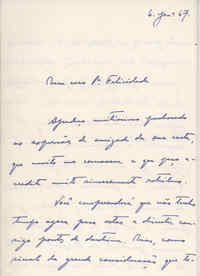 6. jan. 67.
Meu caro Pe. Felicidade
Agradeço muitíssimo penhorado
as expressões de amizade da sua carta,
que muito me comovem e que peço a-
credite muito sinceramente retribuo.
Você compreenderá que não tenho
tempo agora para estar a discutir con-
sigo pontos de doutrina. Mas, como
sinal da grande consideração que te-